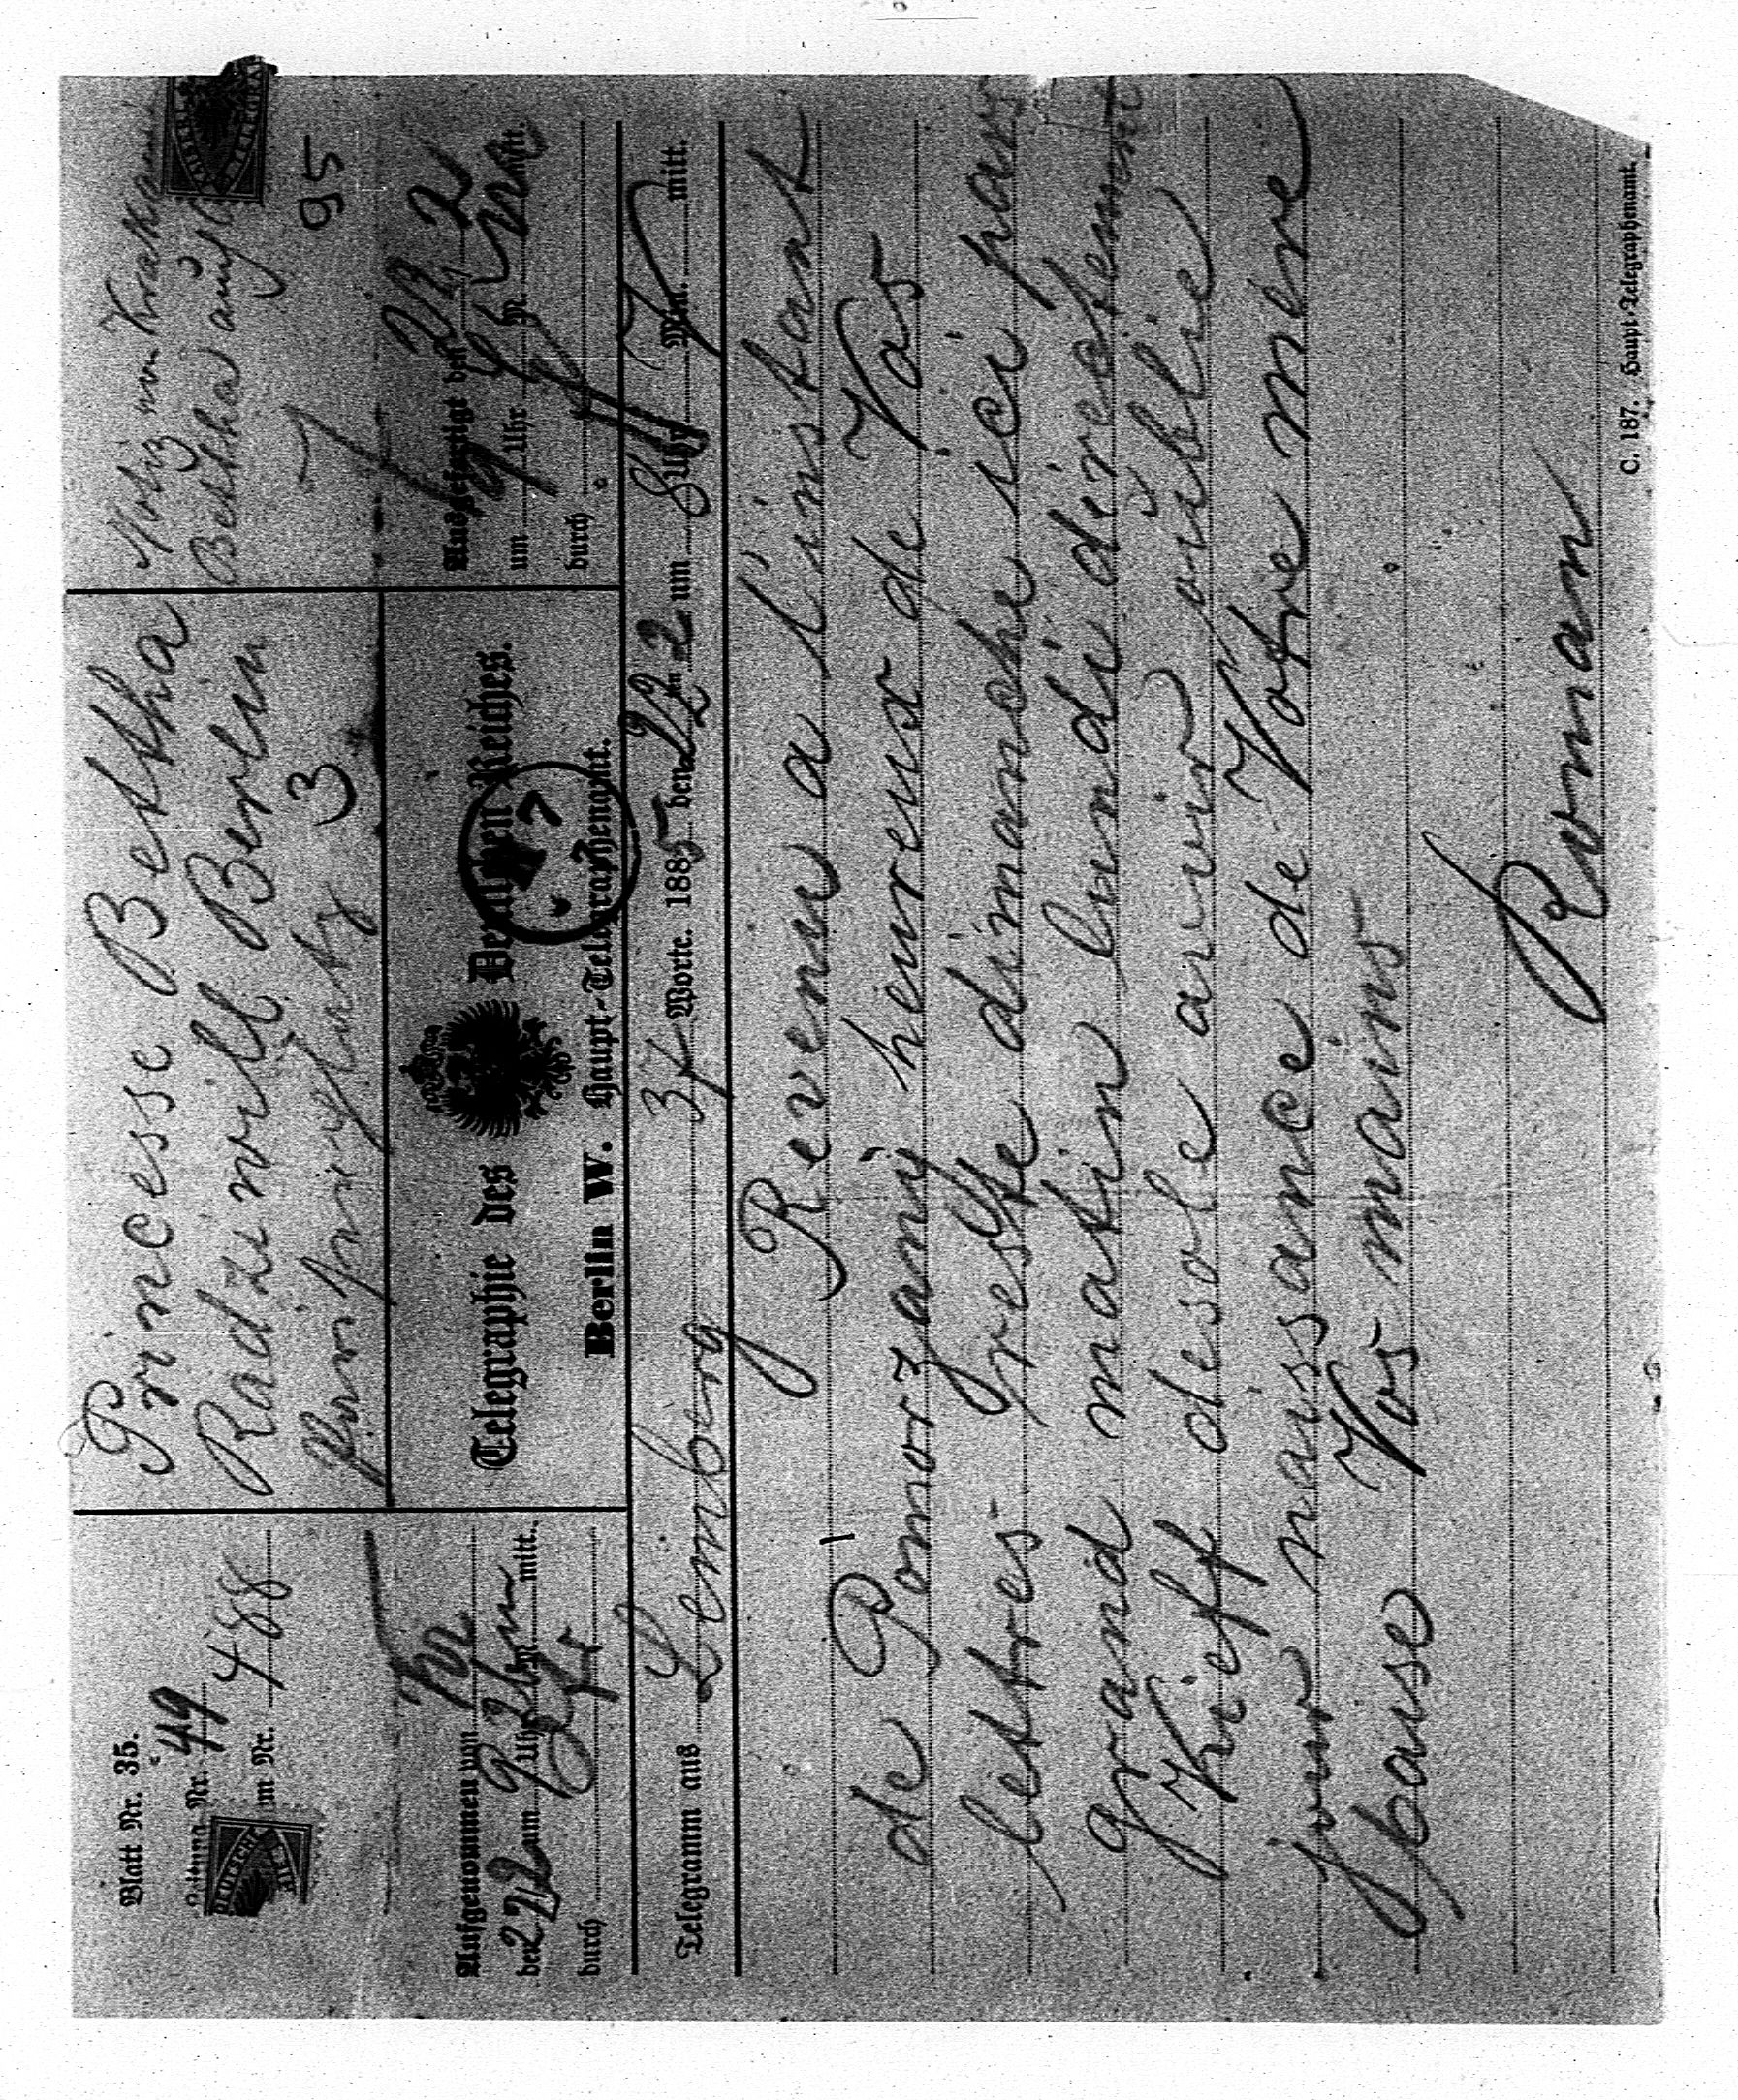 Blatt Nr. 35.
Leitung Nr. 49
im Nr. 488
Princesse Betka
Radziwill Berlin
3
Notiz von Krakau
Bethka auf
95
Aufgenommen von
den 22/2 um 9 Uhr Min. mitt.
durch
Telegraphie des Deutschen Reiches.
Berlin W. Haupt-Telegraphenamt.
Ausgefertigt den 22/2
um 9 Uhr M. mitt.
durch
Telegramm aus Lemberg 37 Worte. 1885 den 22/2 um 8 Uhr Min. mitt.
Revenu a l'instant
de Pomorzany heureux de Vos
lettres reste dimanche ici pars
grand matin lundi directement
Kieff desole avoir oublie
jour naissance de Votre mere
baise Vos mains
Roman
C. 187. Haupt-Telegraphenamt.